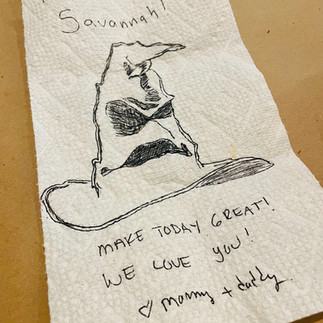 Savannah!
MAKE TODAY GREAT!
WE LOVE YOU!
♡ mommy + daddy